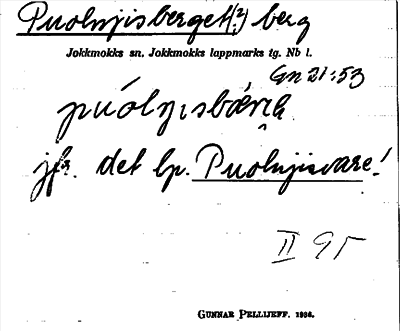 Puolnjisberget(?) berg
Jokkmokks sn, Jokkmokks lappmarks tg. Nb l.
Gn 21:53
jfr. det lp. Puolnjisvare!
II 95
GUNNAR PELLIJEFF. 1936.